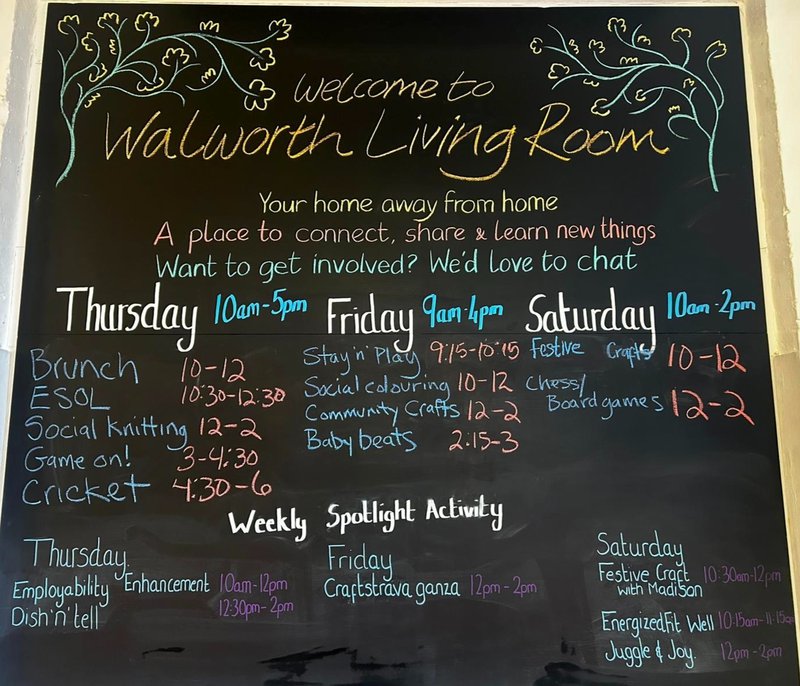 Welcome to
Walworth Living Room
Your home away from home
A place to connect, share & learn new things
Want to get involved? We'd love to chat
Thursday 10am-5pm
Brunch 10-12
ESOL 10:30-12:30
Social Knitting 12-2
Game on! 3-4:30
Cricket 4:30-6
Friday 9am-4pm
Stay 'n' Play 9:15-10:15
Social colouring 10-12
Community Crafts 12-2
Baby beats 2:15-3
Saturday 10am-2pm
Festive Crafts 10-12
Chess/
Board games 12-2
Weekly Spotlight Activity
Thursday.
Employability Enhancement 10am-12pm
Dish 'n' tell 12:30pm-2pm
Friday
Craftstrava ganza 12pm-2pm
Saturday
Festive Craft 10:30am-12pm
with Madison
Energized,Fit Well 10:15am-11:15am
Juggle & Joy. 12pm-2pm